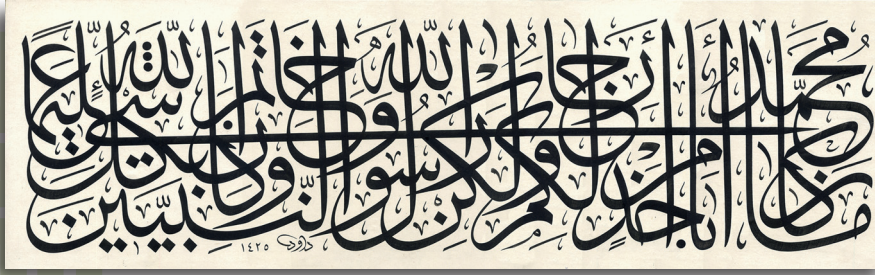 ما كان محمد أبا أحد من رجالكم ولكن رسول الله وخاتم النبيين وكان الله بكل شيء عليما
داود ١٤٢٥